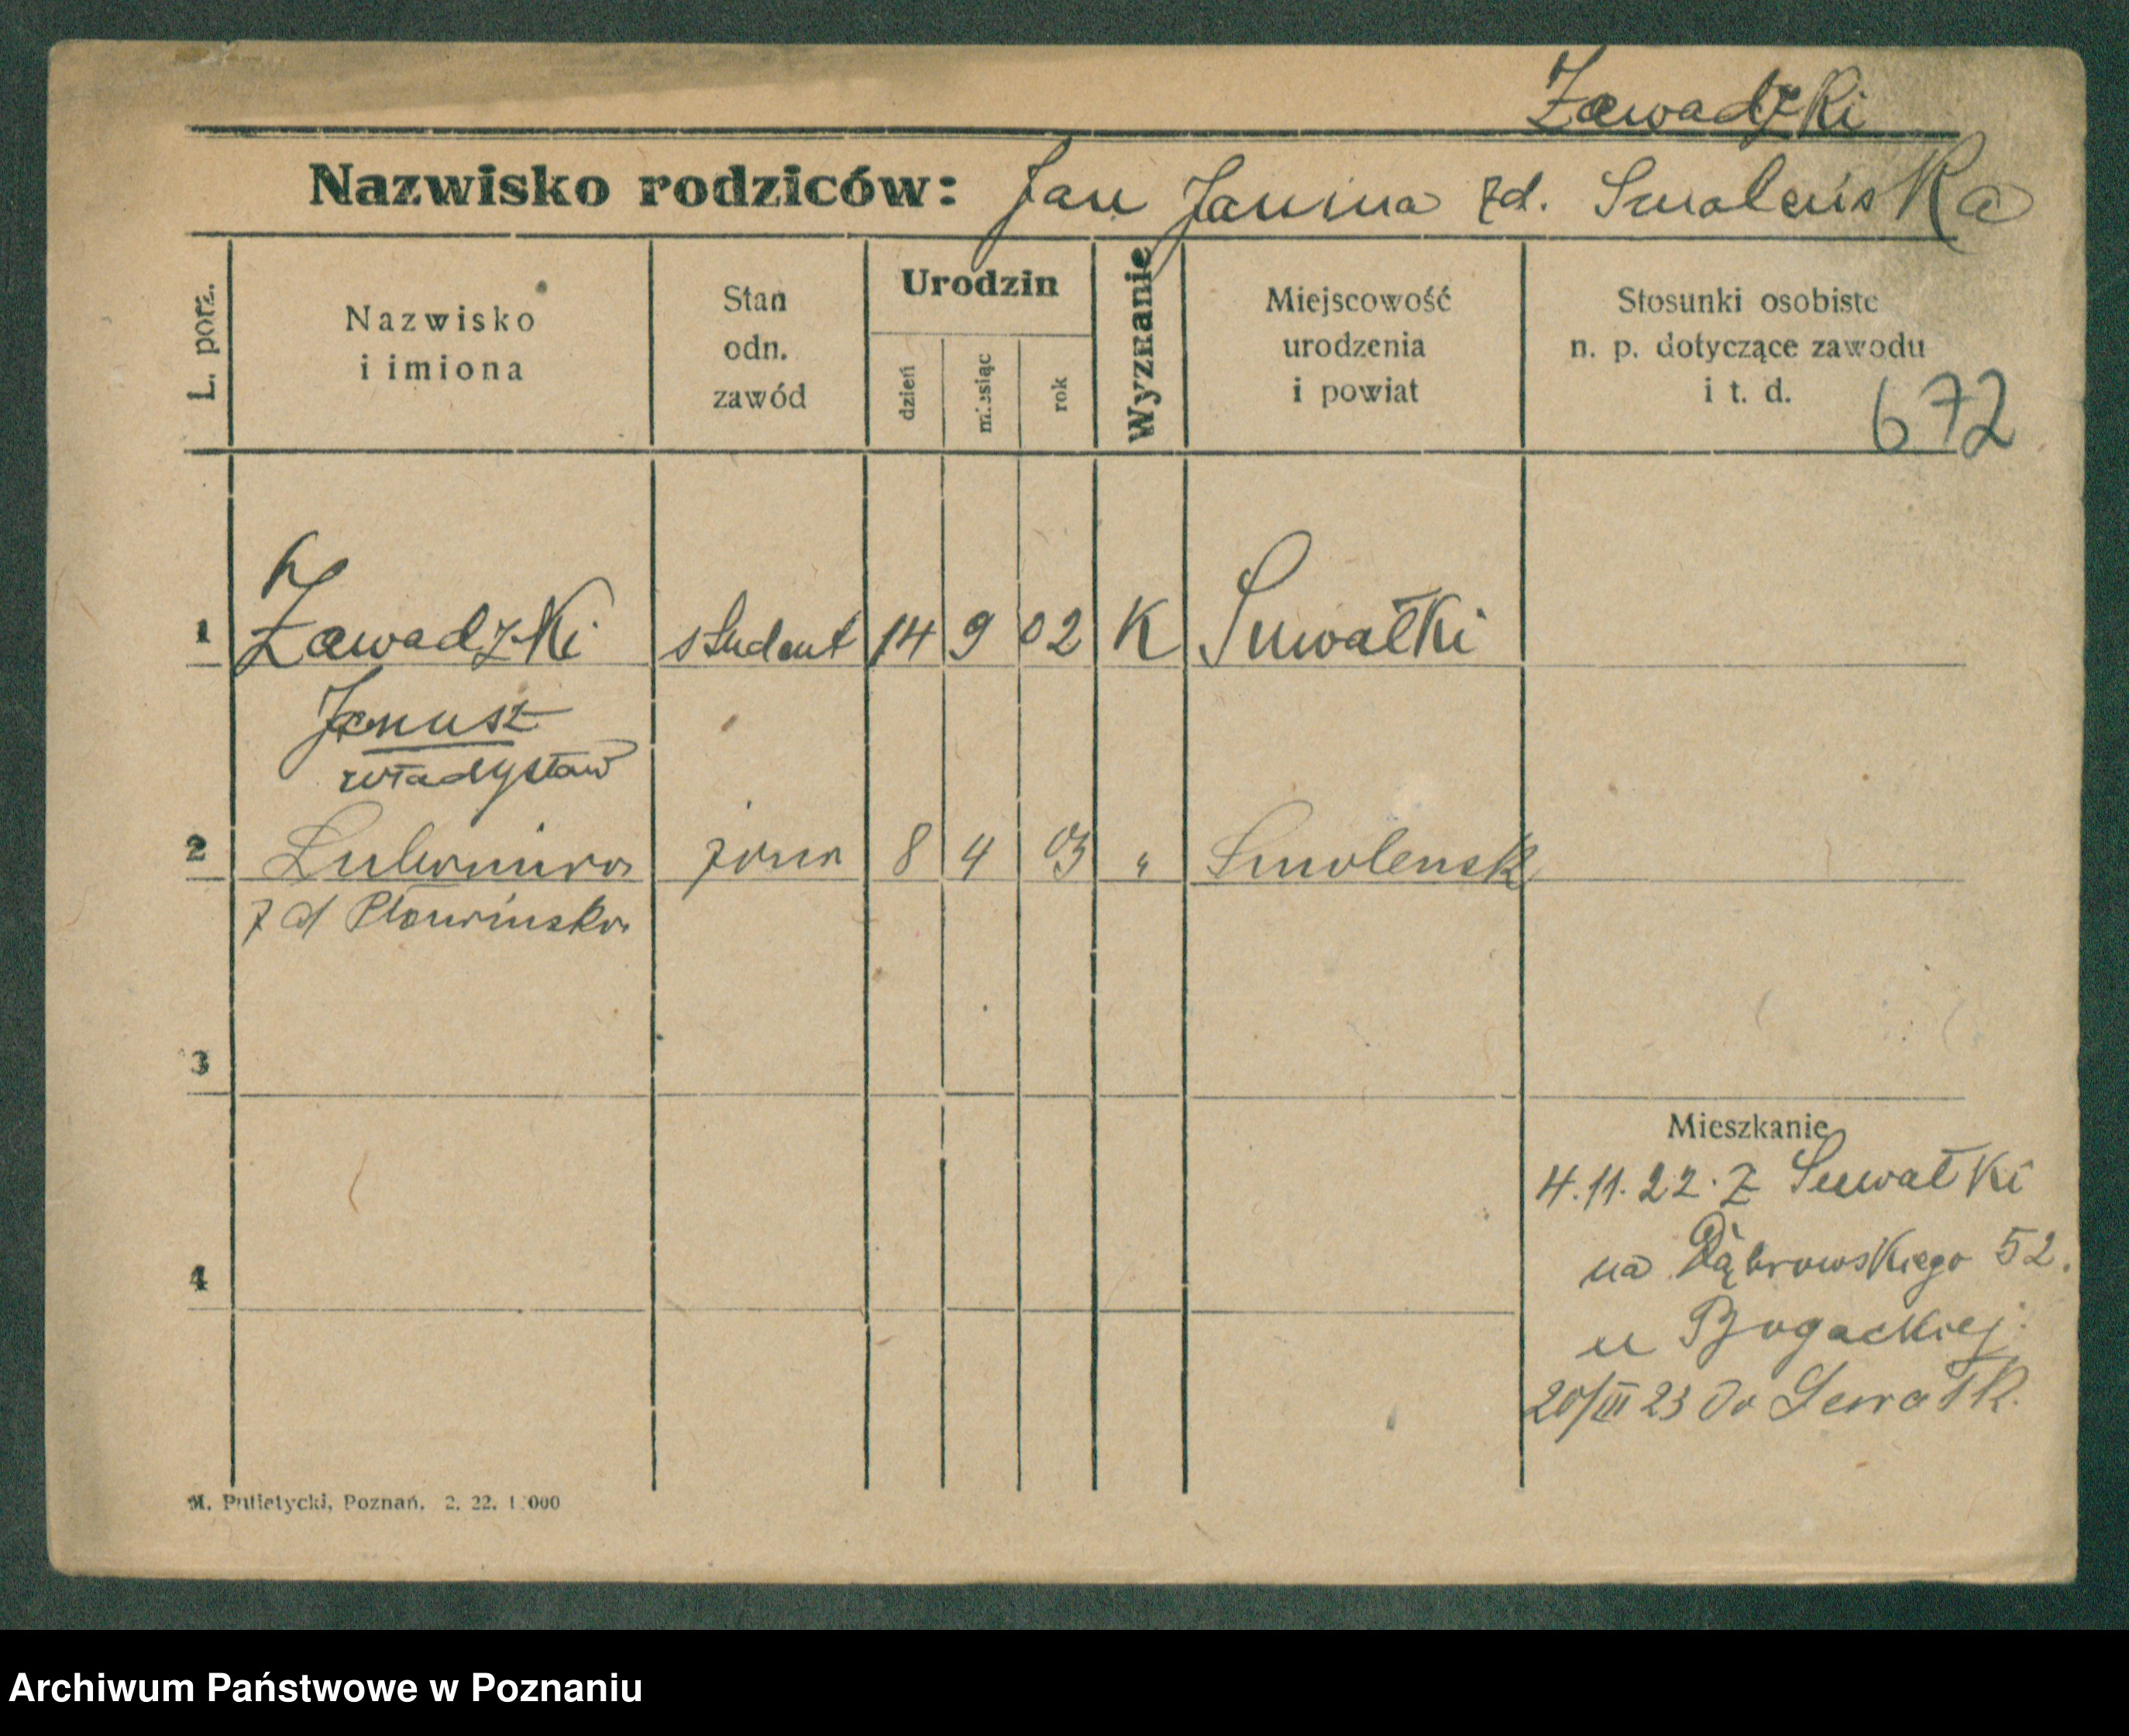 Zawadzki
Nazwisko rodziców: Jan Janina zd. Smoleńska
L. porz.
Nazwisko
i imiona
Stan
odn.
zawód
Urodzin
dzień
miesiąc
rok
Wyznanie
Miejscowość
urodzenia
i powiat
Stosunki osobiste
n. p. dotyczące zawodu
i t. d.
672
1 Zawadzki student 14 9 02 K Suwałki
Janusz
Władysław
2 Lubomira żona 8 4 03 " Smolensk
zd
3
Mieszkanie
4.11.22. z Suwałki
na Dąbrowskiego 52.
4
u Bogackiej
20/III 23 do Suwałk.
M. Putiatycki, Poznań. 2. 22.
Archiwum Państwowe w Poznaniu